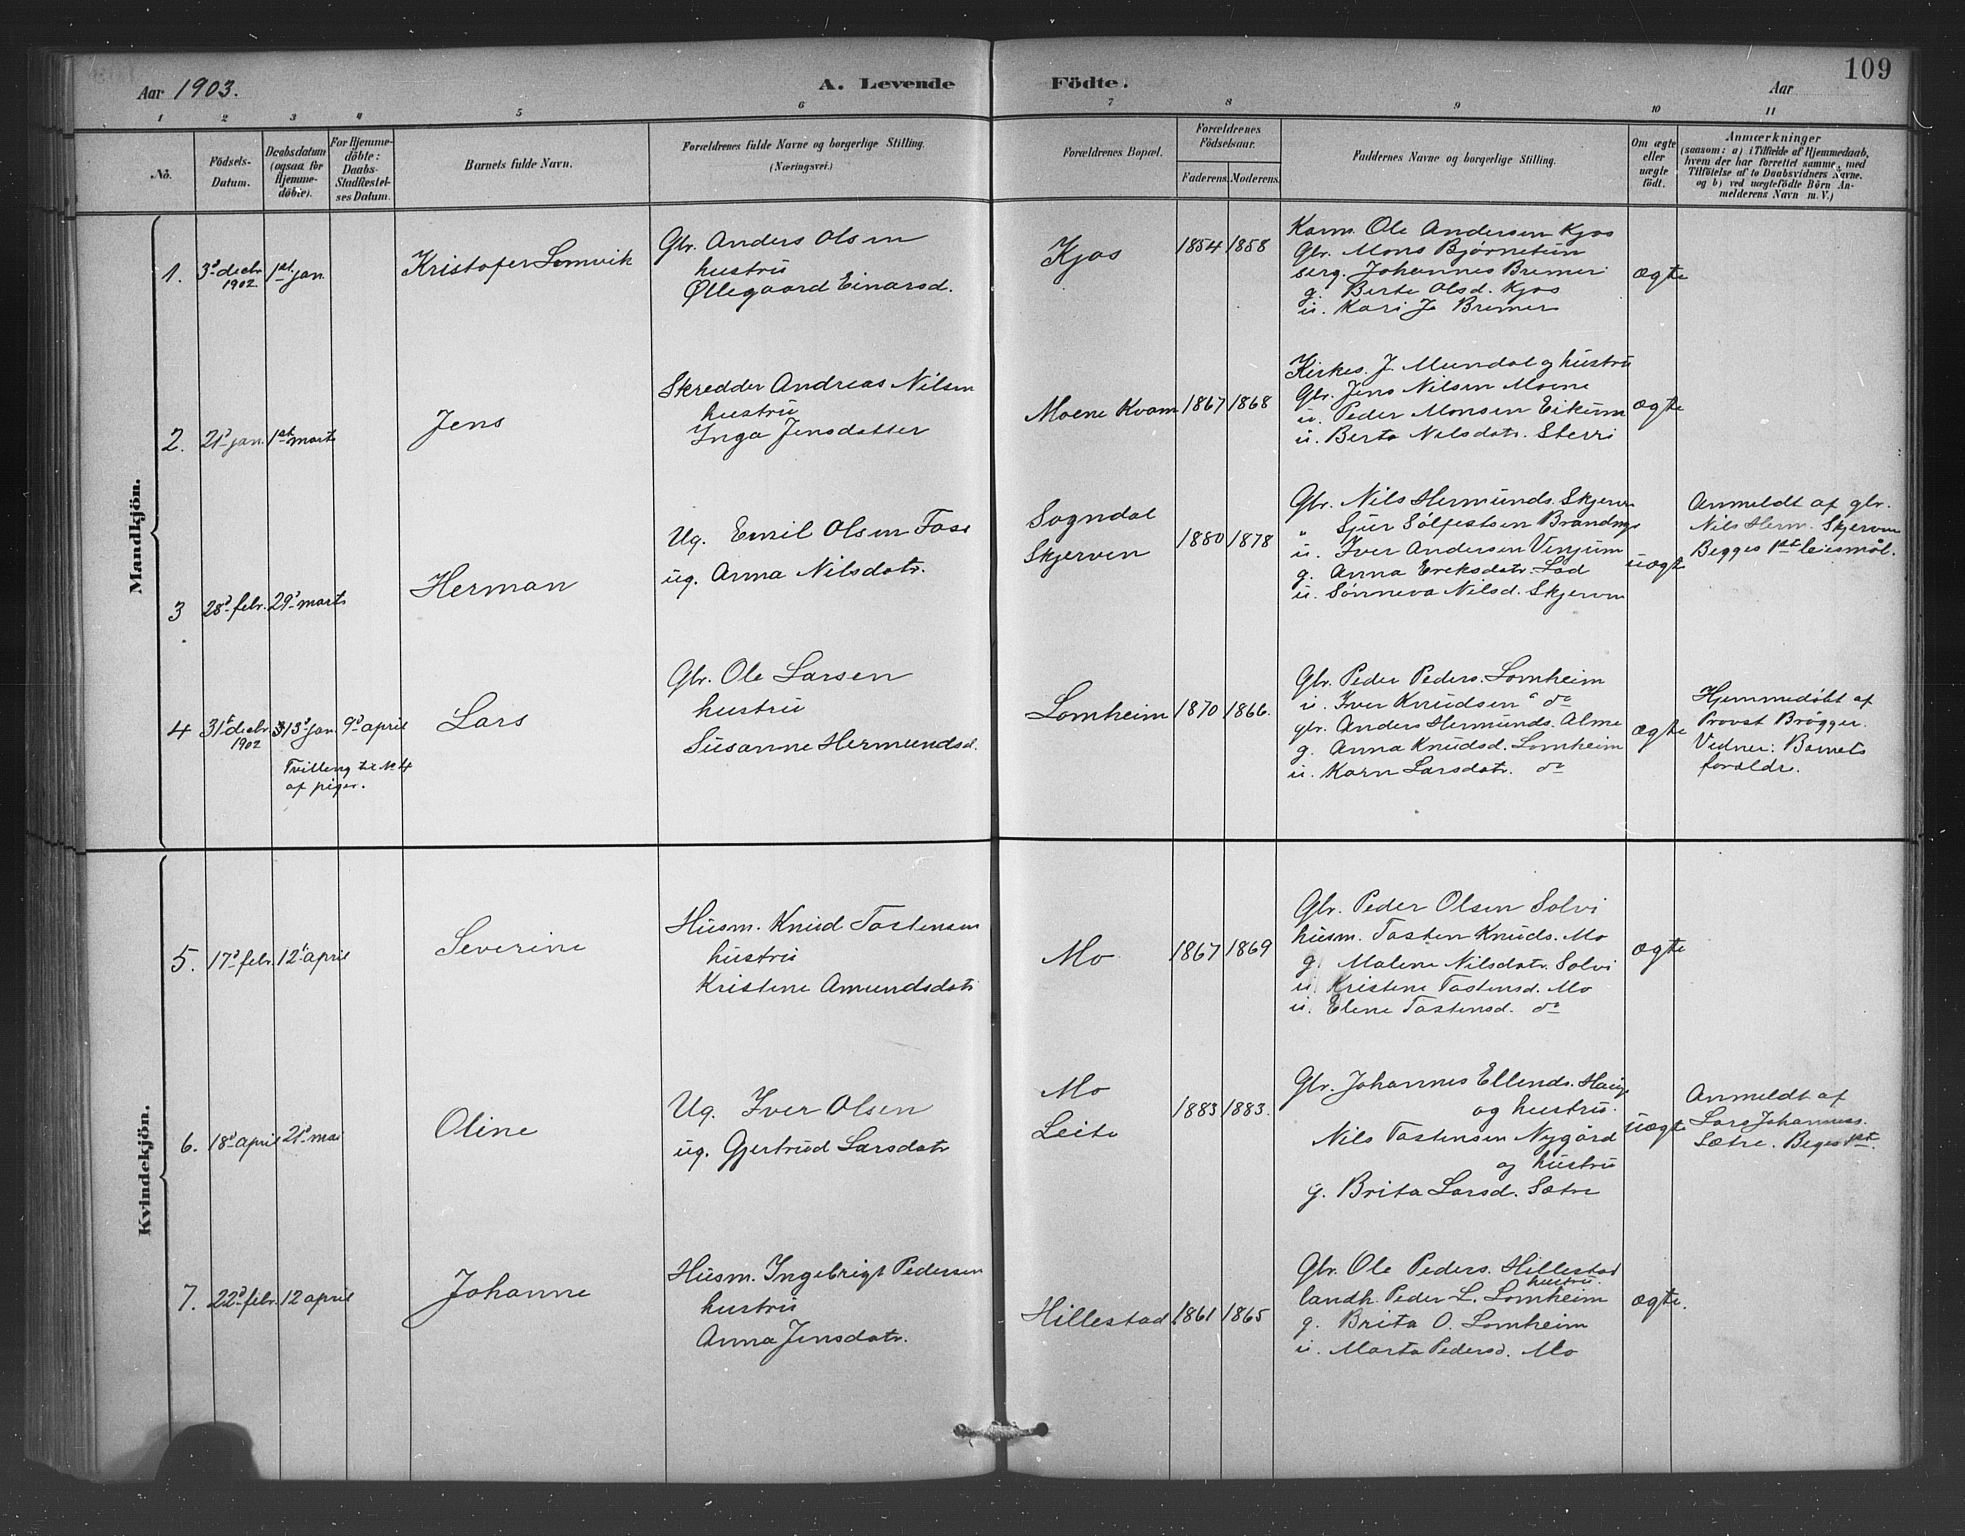 109
Aar 1903.
A. Levende Födte.
Aar
1 2 3 4 5 6 7 8 9 10 11
No.
Födsels-Datum.
Daabsdatum (ogsaa for Hjemme-döbte).
For Hjemme-döbte: Daabs-Stadfæstel-ses Datum.
Barnets fulde Navn.
Forældrenes fulde Navne og borgerlige Stilling.
(Næringsvei.)
Forældrenes Bopæl.
Forældrenes Födselsaar.
Faderens. Moderens.
Faddernes Navne og borgerlige Stilling.
Om ægte eller uægte födt.
Anmærkninger
(saasom: a) i Tilfælde af Hjemmedaab,
hvem der har forrettet samme, med
Tilföielse af to Daabsvidners Navne.
og b) ved uægtefödte Börn An-
melderens Navn m. V.)
Mandkjön.
1. 3d decbr 1902 1st jan Kristofer Lomvik
Gbr. Anders Olsen
hustru
Øllegaard Einarsd.
Kjos 1854 1858
Karm. Ole Andersen Kjos
Gbr. Mons Bjørnetun
serg. Johannes Bremer
g. Berte Olsd. Kjos
u. Kari J. Bremer
ægte
2. 21d jan. 1st marts Jens
Skredder Andreas Nilsen
hustru
Inga Jensdatter
Moene Kvam 1867 1868
Kirkes. J. Mundal og hustru
Gbr. Jens Nilsen Moene
u. Peder Monsen Eikum
u. Berta Nilsdatr. Sterri
ægte
3 28d febr. 29d marts Herman
Ug. Emil Olsen Foss
ug. Anna Nilsdatr.
Sogndal
Skjerven
1880 1878
Gbr. Nils Hermunds. Skjerven
" Sjur Sølfestsen
u. Iver Andersen Venjum
g. Anna Ereksdatr. Lad
u. Sønneva Nilsd. Skjerven
uægte
Anmeldt af gbr.
Nils Herm. Skjerven
Begges 1st leiesmål.
4 31te decbr 1902 13d jan 9d april Lars
Tvilling til No 4
af piger.
Gbr. Ole Larsen
hustru
Susanne Hermundsd.
Lomheim 1870 1866.
Gbr. Peder Peders. Lomheim
u. Iver Knudsen " do
gbr. Anders Hermunds. Alme
g. Anna Knudsd. Lomheim
u. Karn Larsdatr. do
ægte
Hjemmedøbt af
Provst Brøgger.
Vidner: Barnets
forældre.
Kvindekjön.
5. 17d febr. 12te april Severine
Husm. Knud Tostensen
hustru
Kristine Amundsdatr
Mo 1867 1869
Gbr. Peder Olsen Solvi
husm. Tosten Knuds. Mo
g. Malene Nilsdatr. Solvi
u. Kristine Tostensd. Mo
u. Eline Tostensd. do
ægte
6. 18d april 21d mai Oline
Ug. Iver Olsen
ug. Gjertrud Larsdatr
Mo
Leite
1883 1883.
Gbr. Johannes Ellends. Haug
og hustru.
Nils Tostensen Nygård
og hustru
g. Brita Larsd. Sætre
uægte
Anmeldt af
Lars Johanness.
Sætre. Beges 1st.
7. 22d febr. 12 april Johanne
Husm. Ingebrigt Pedersen
hustru
Anna Jensdatr.
Hillestad 1861 1865
Gbr. Ole Peders. Hillestad
hustru.
landh. Peder L. Lomheim
g. Brita O. Lomheim
u. Marta Pedersd. Mo
ægte.